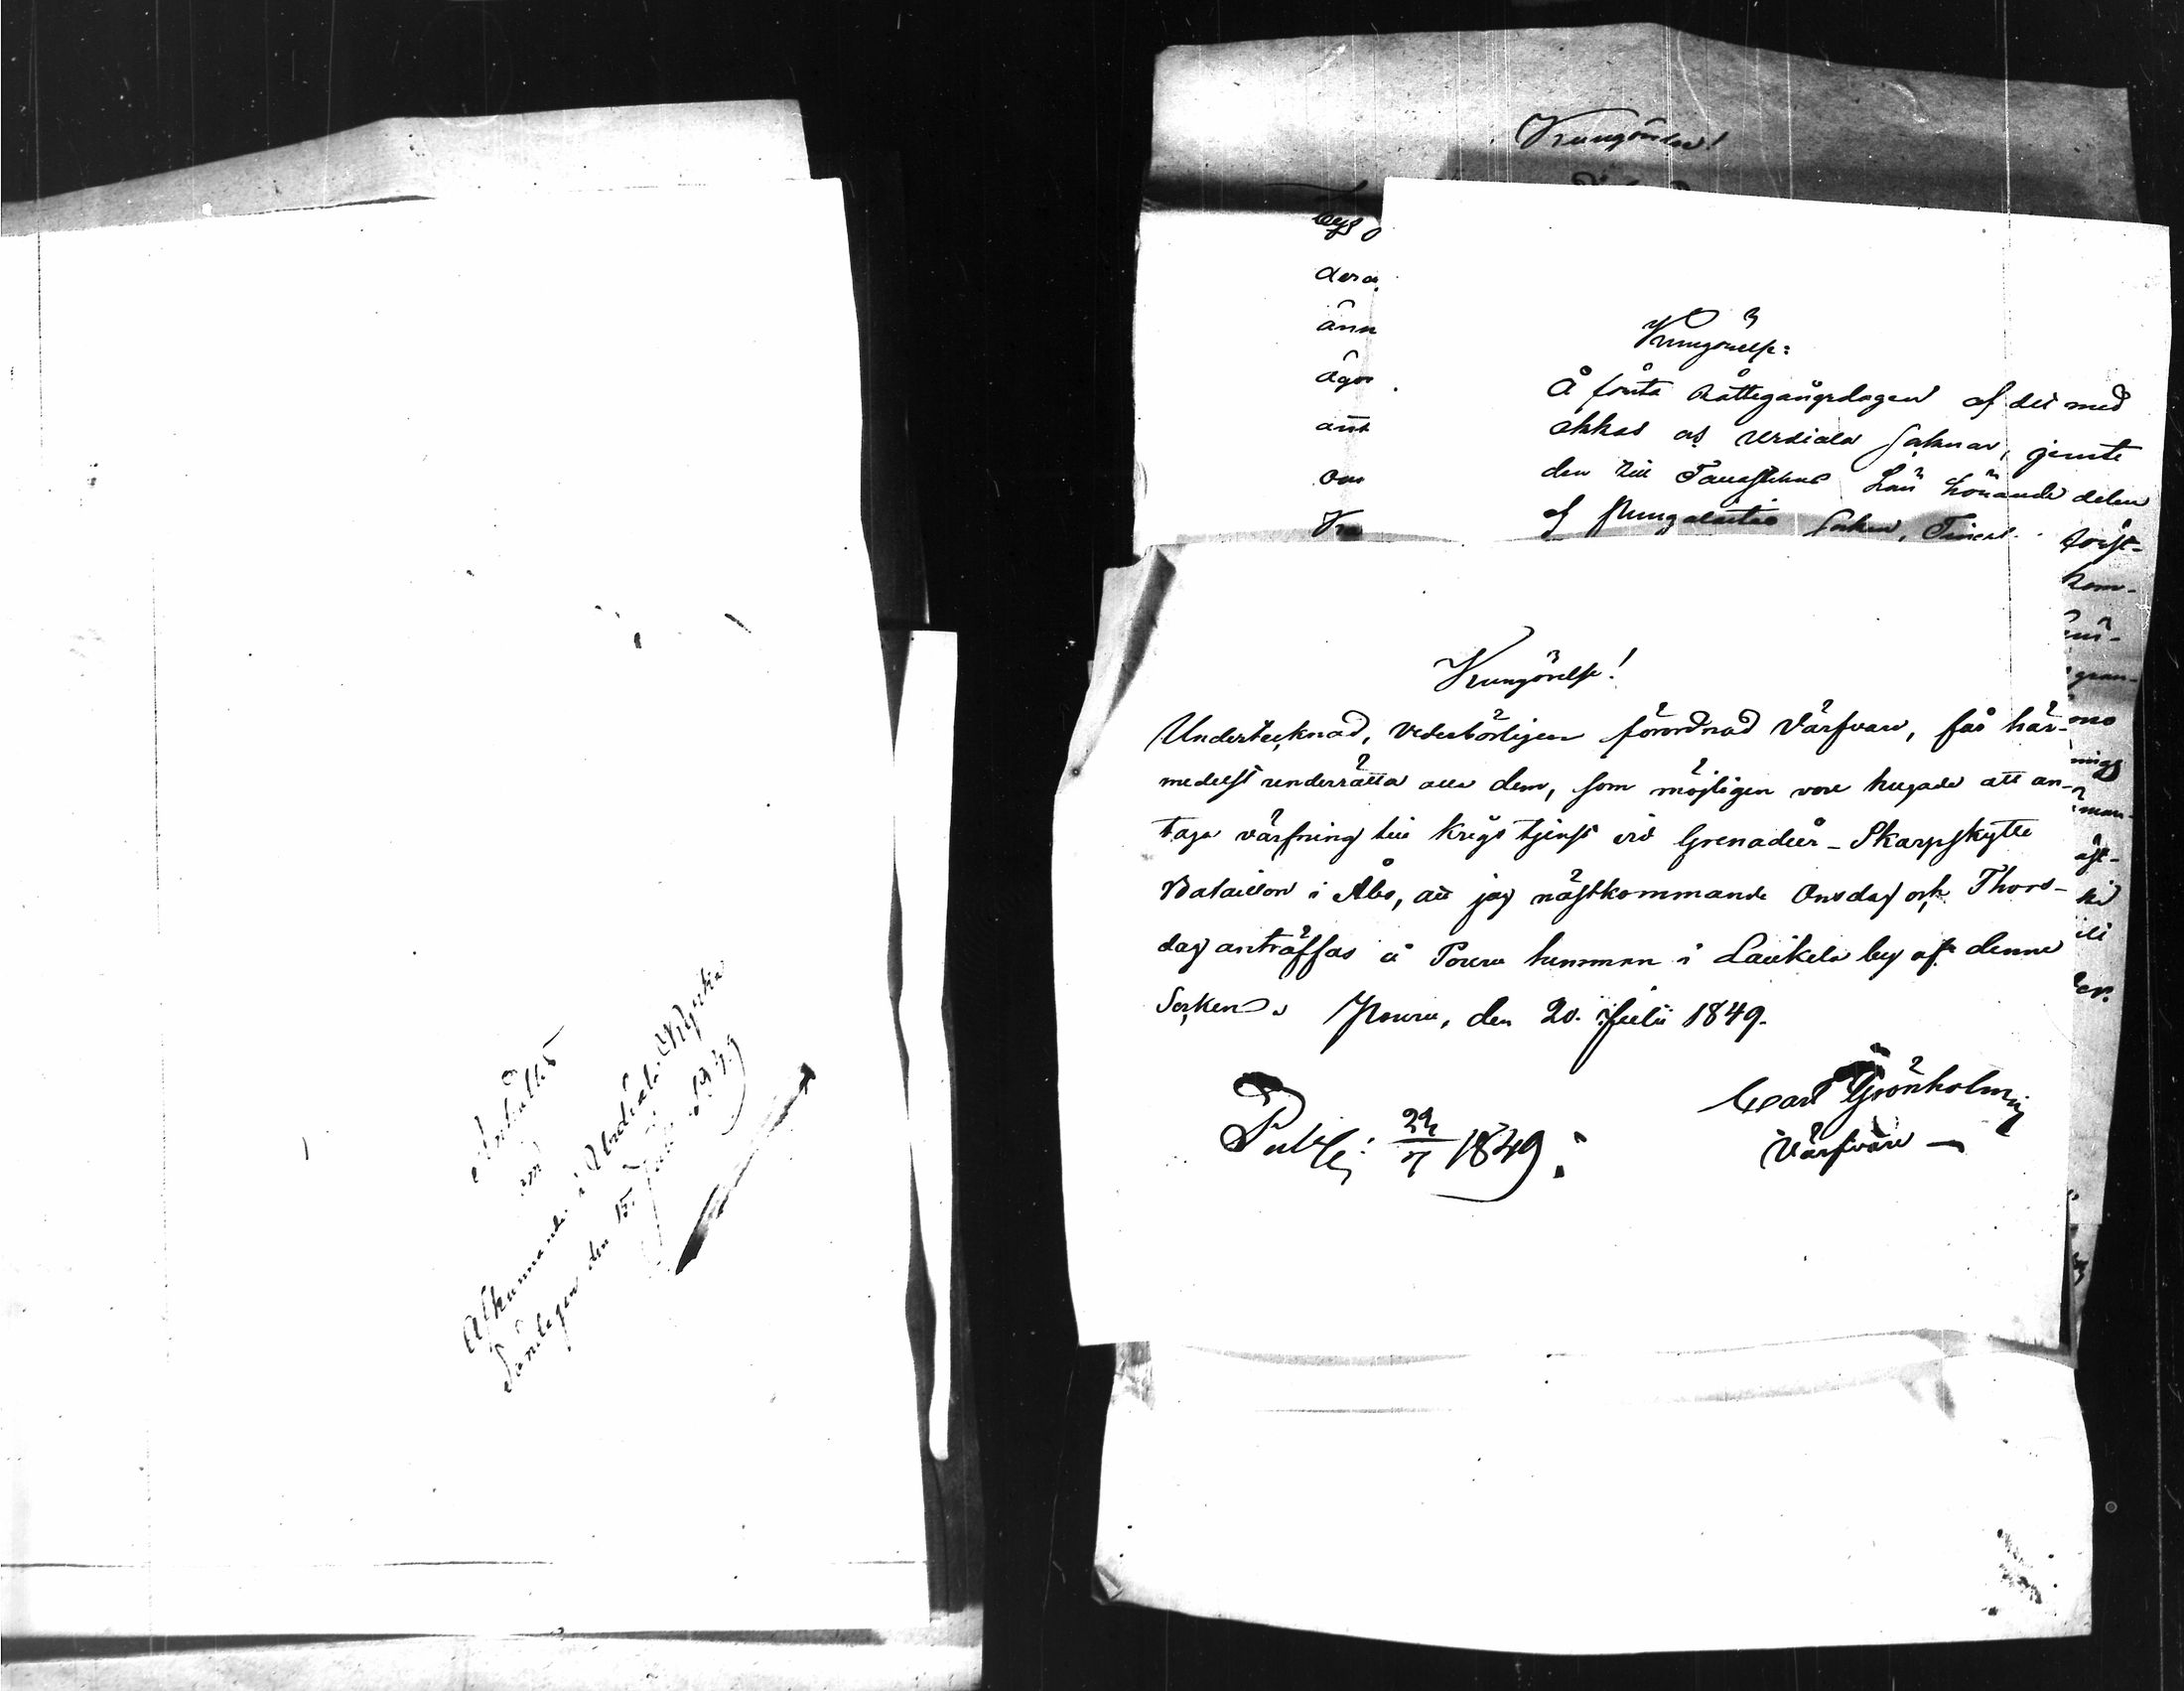 Anhålles
om
Afkunnande i Urdiala Kyrka
Söndagen den 15 Julii 1849
Kungörelse!
dera
änn
ägor
annt
om
Kungörelse:
Å första Rättegångsdagen af det med
Akkas och Urdiala Soknar, jemte
den till Tavastehus Län hörande delen
af Pungalaitio Socken,
Kungörelse!
Undertecknad, vederbörligen förordnad Värfvare, får här-
medelst underrätta alla dem, som möjligen vore hugade att an-
taga värfning till Krigstjenst vid Grenadier-Skarpskytte
Bataillon i Åbo, att jag nästkommande Onsdag och Thors-
dag anträffas å Pouru hemman i Laukela by af denne
Socken. Pouru, den 20. Julii 1849.
Carl Grönholm
Värfvare
Publ: 22/7 1849: